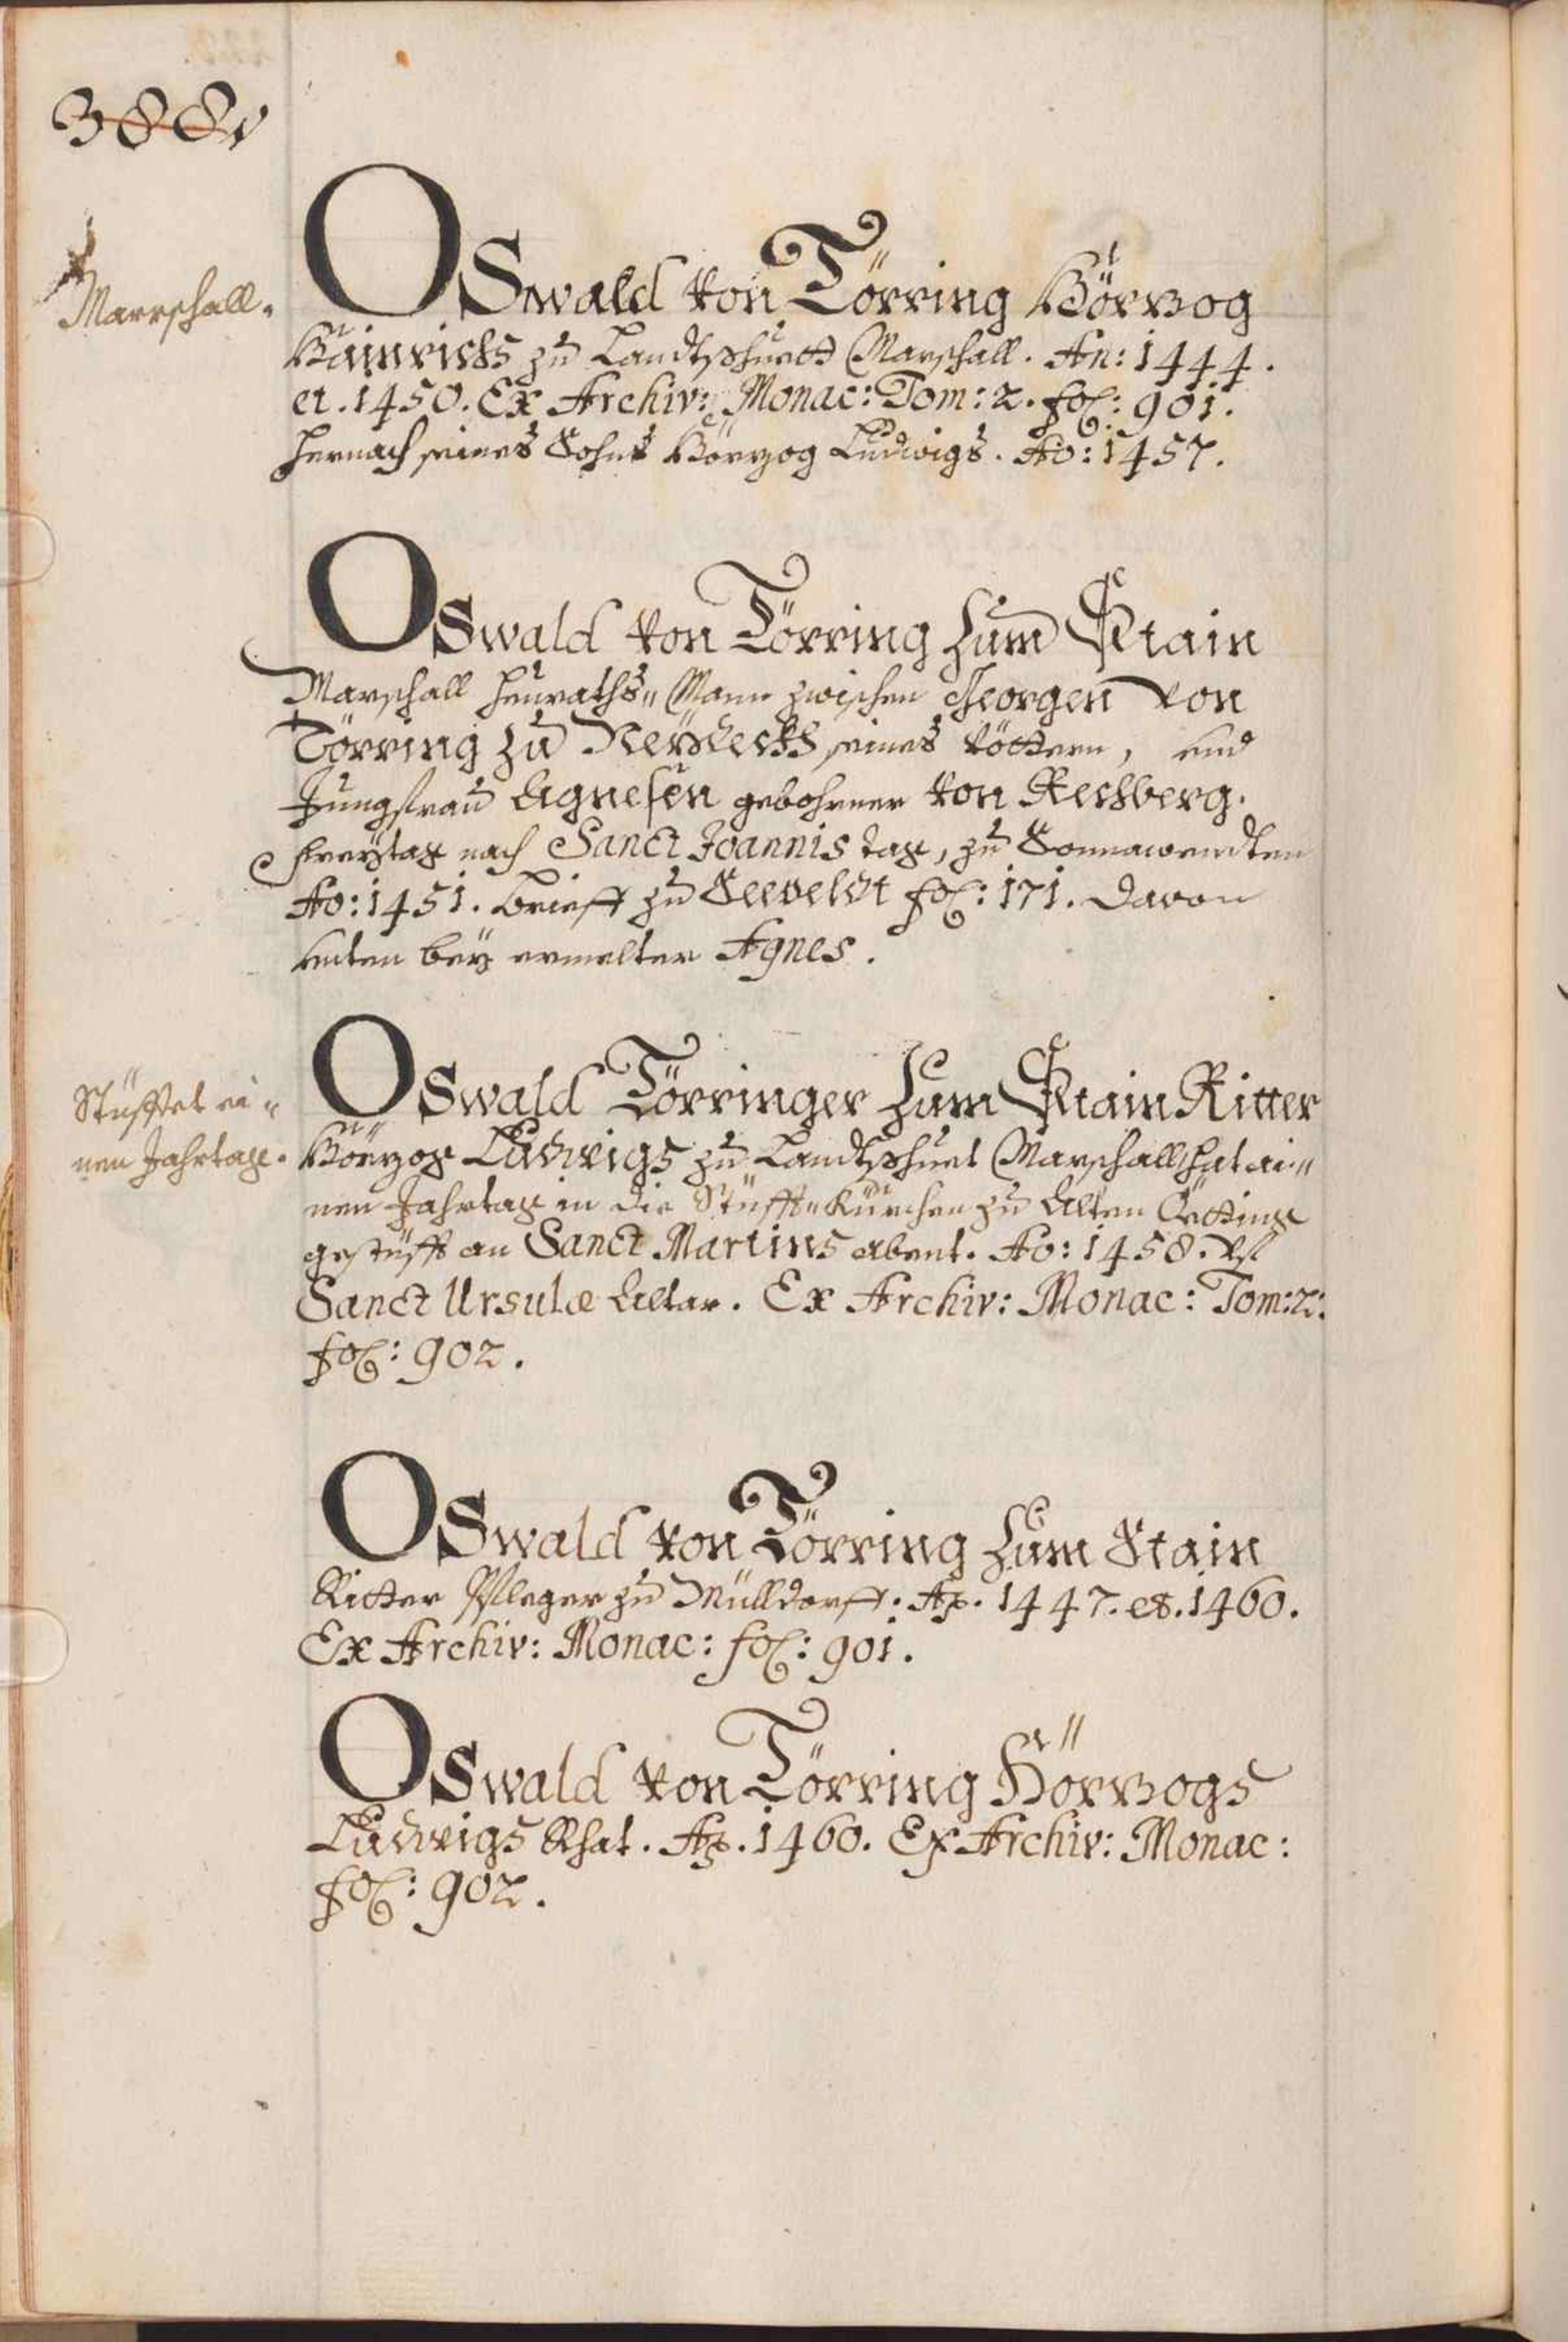 388v
Marrschall.
OSwald von Törring Hörzog
Hainrichs zu Landtshuett Marschall. An: 1444.
et. 1450. Ex Archiv: Monac: Tom: 2. fol: 901.
hernach seines Sohns Hörzog Ludwigs. Ao: 1457.
OSwald von Törring zum Stain
Marschall heuraths„ Mann zwischen Georgen von
Törring zu seines Vöttern, und
Jungfrau Agnesen gebohrner von Rechberg.
Freytag nach Sanct Joannis tag, zu Sonnawendten
Ao: 1451. brieff zu Seeveldt fol: 171. Davon
unten bey ermelter Agnes.
Stüfftet ei„
nen Jahrtage.
OSwald Törringer zum Stain Ritter
Hörzog Ludwigs zu Landtshuet Marschall hat ai„
nen Jahrtag in die Stüfft„Kürchen zu Alten Öetting
gestüfft an Sanct Martins abent. Ao: 1458.
Sanct Ursulæ Altar. Ex Archiv: Monac: Tom: 2:
fol: 902.
OSwald von Törring zum Stain
Ritter Pfleger zu Mülldorff. Ao. 1447. et. 1460.
Ex Archiv: Monac: fol: 901.
OSwald von Törring Hörzogs
Ludwigs Rhat. Ao. 1460. Ex Archiv: Monac:
fol: 902.